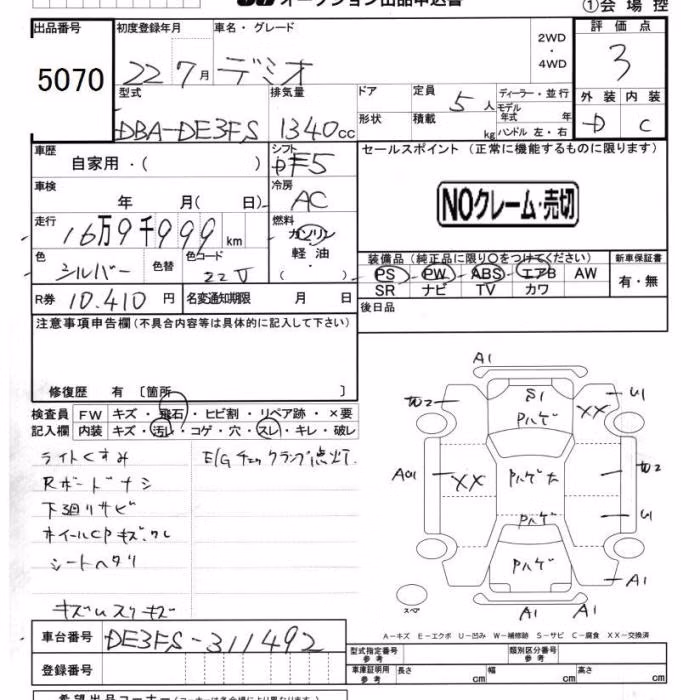 オークション出品申込書
①会場控
出品番号
5070
初度登録年月
22 7月
車名・グレード
デミオ
2WD・4WD
評価点
3
外装 内装
D C
型式
DBA-DE3FS
排気量
1340cc
ドア
形状
定員
5人
積載
kg
ディーラー・並行
モデル年式 年
ハンドル 左・右
車歴
自家用・( )
シフト
F5
セールスポイント (正常に機能するものに限ります)
NOクレーム・売切
車検
年 月( 日)
冷房
AC
走行
16万9千999km
燃料
ガソリン
軽油
( )
色
シルバー
色替
色コード
22V
装備品 (純正品に限り○をつけてください)
PS PW ABS エアB AW
SR ナビ TV カワ
新車保証書
有・無
R券
10.410円
名変通知期限 月 日
後日品
注意事項申告欄 (不具合内容等は具体的に記入して下さい)
修復歴 有 〔箇所 〕
検査員記入欄
FW キズ・飛石・ヒビ割・リペア跡・×要
内装 キズ・汚レ・コゲ・穴・スレ・キレ・破レ
ライトくすみ
E/Gチェックランプ点灯.
Rボードナシ
下廻リサビ
ホイールCPキズ・ワレ
シートヘタリ
A1
S1
Pハゲ
XX
U1
XX
Pハゲ
Pハゲ
U1
Pハゲ
A1
A1
スペア
A-キズ E-エクボ U-凹み W-補修跡 S-サビ C-腐食 XX-交換済
車台番号
DE3FS-311492
登録番号
型式指定番号 参考
類別区分番号 参考
車庫証明用 参考
長さ cm
幅 cm
高さ cm
希望出品コーナー